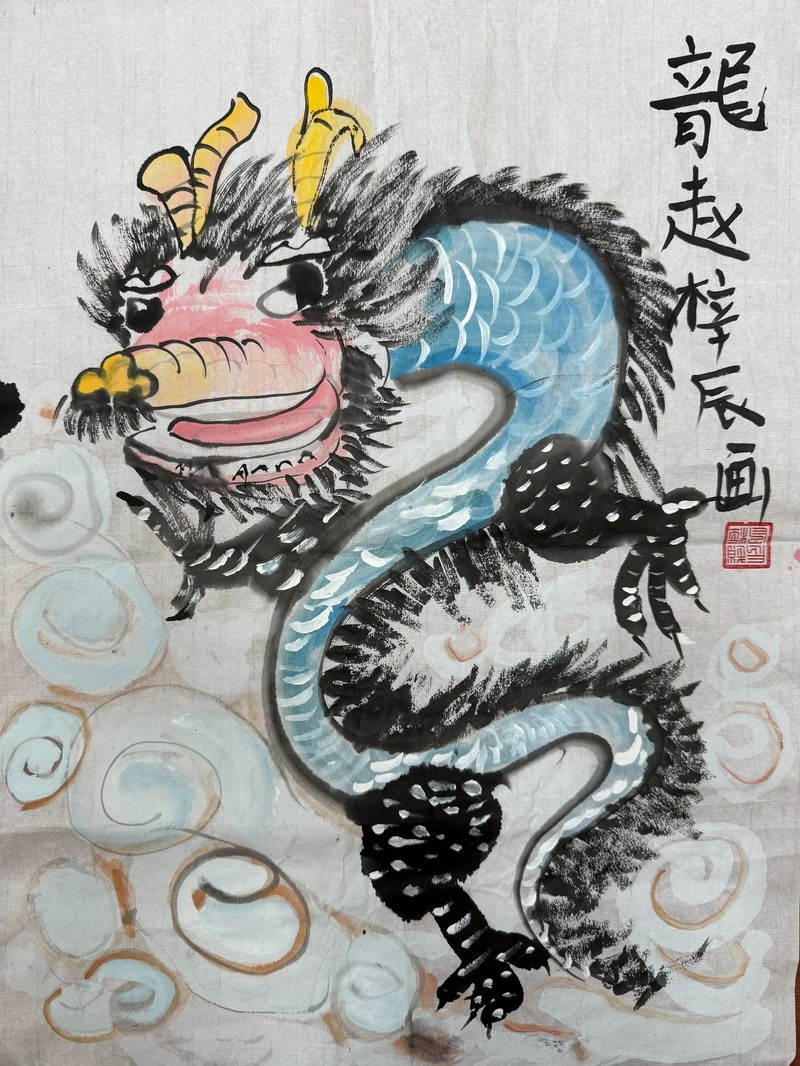 龍赵梓辰画